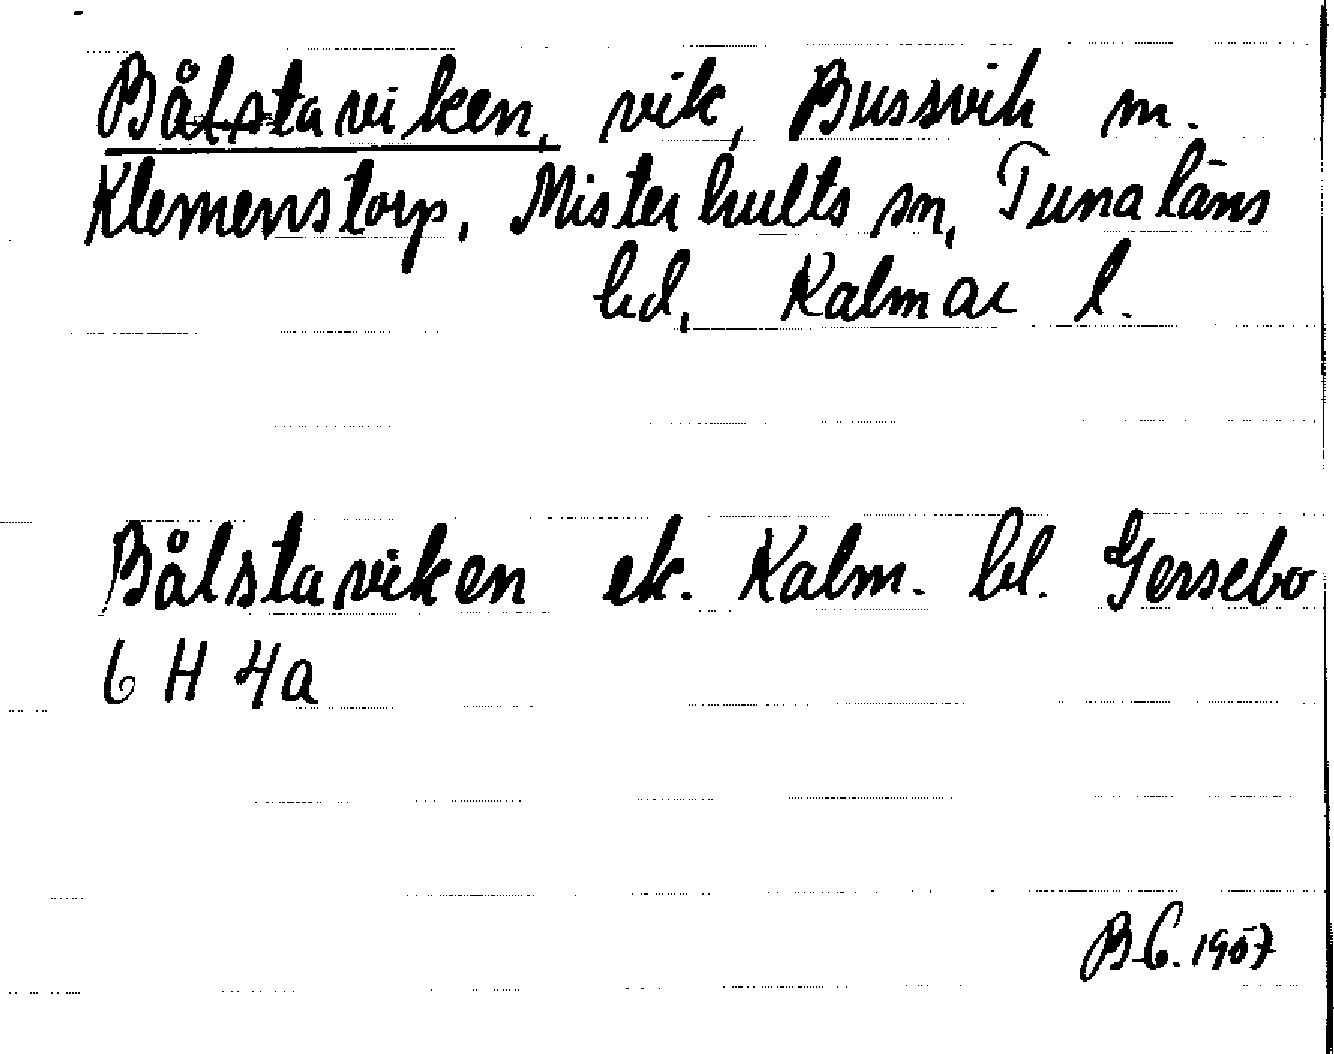 Bålstaviken, vik, Bussvik m.
Klemenstorp, Misterhults sn, Tunaläns
hd, Kalmar l.
Bålstaviken ek. Kalm. bl. Gersebo
6 H 4a
B.C. 1957